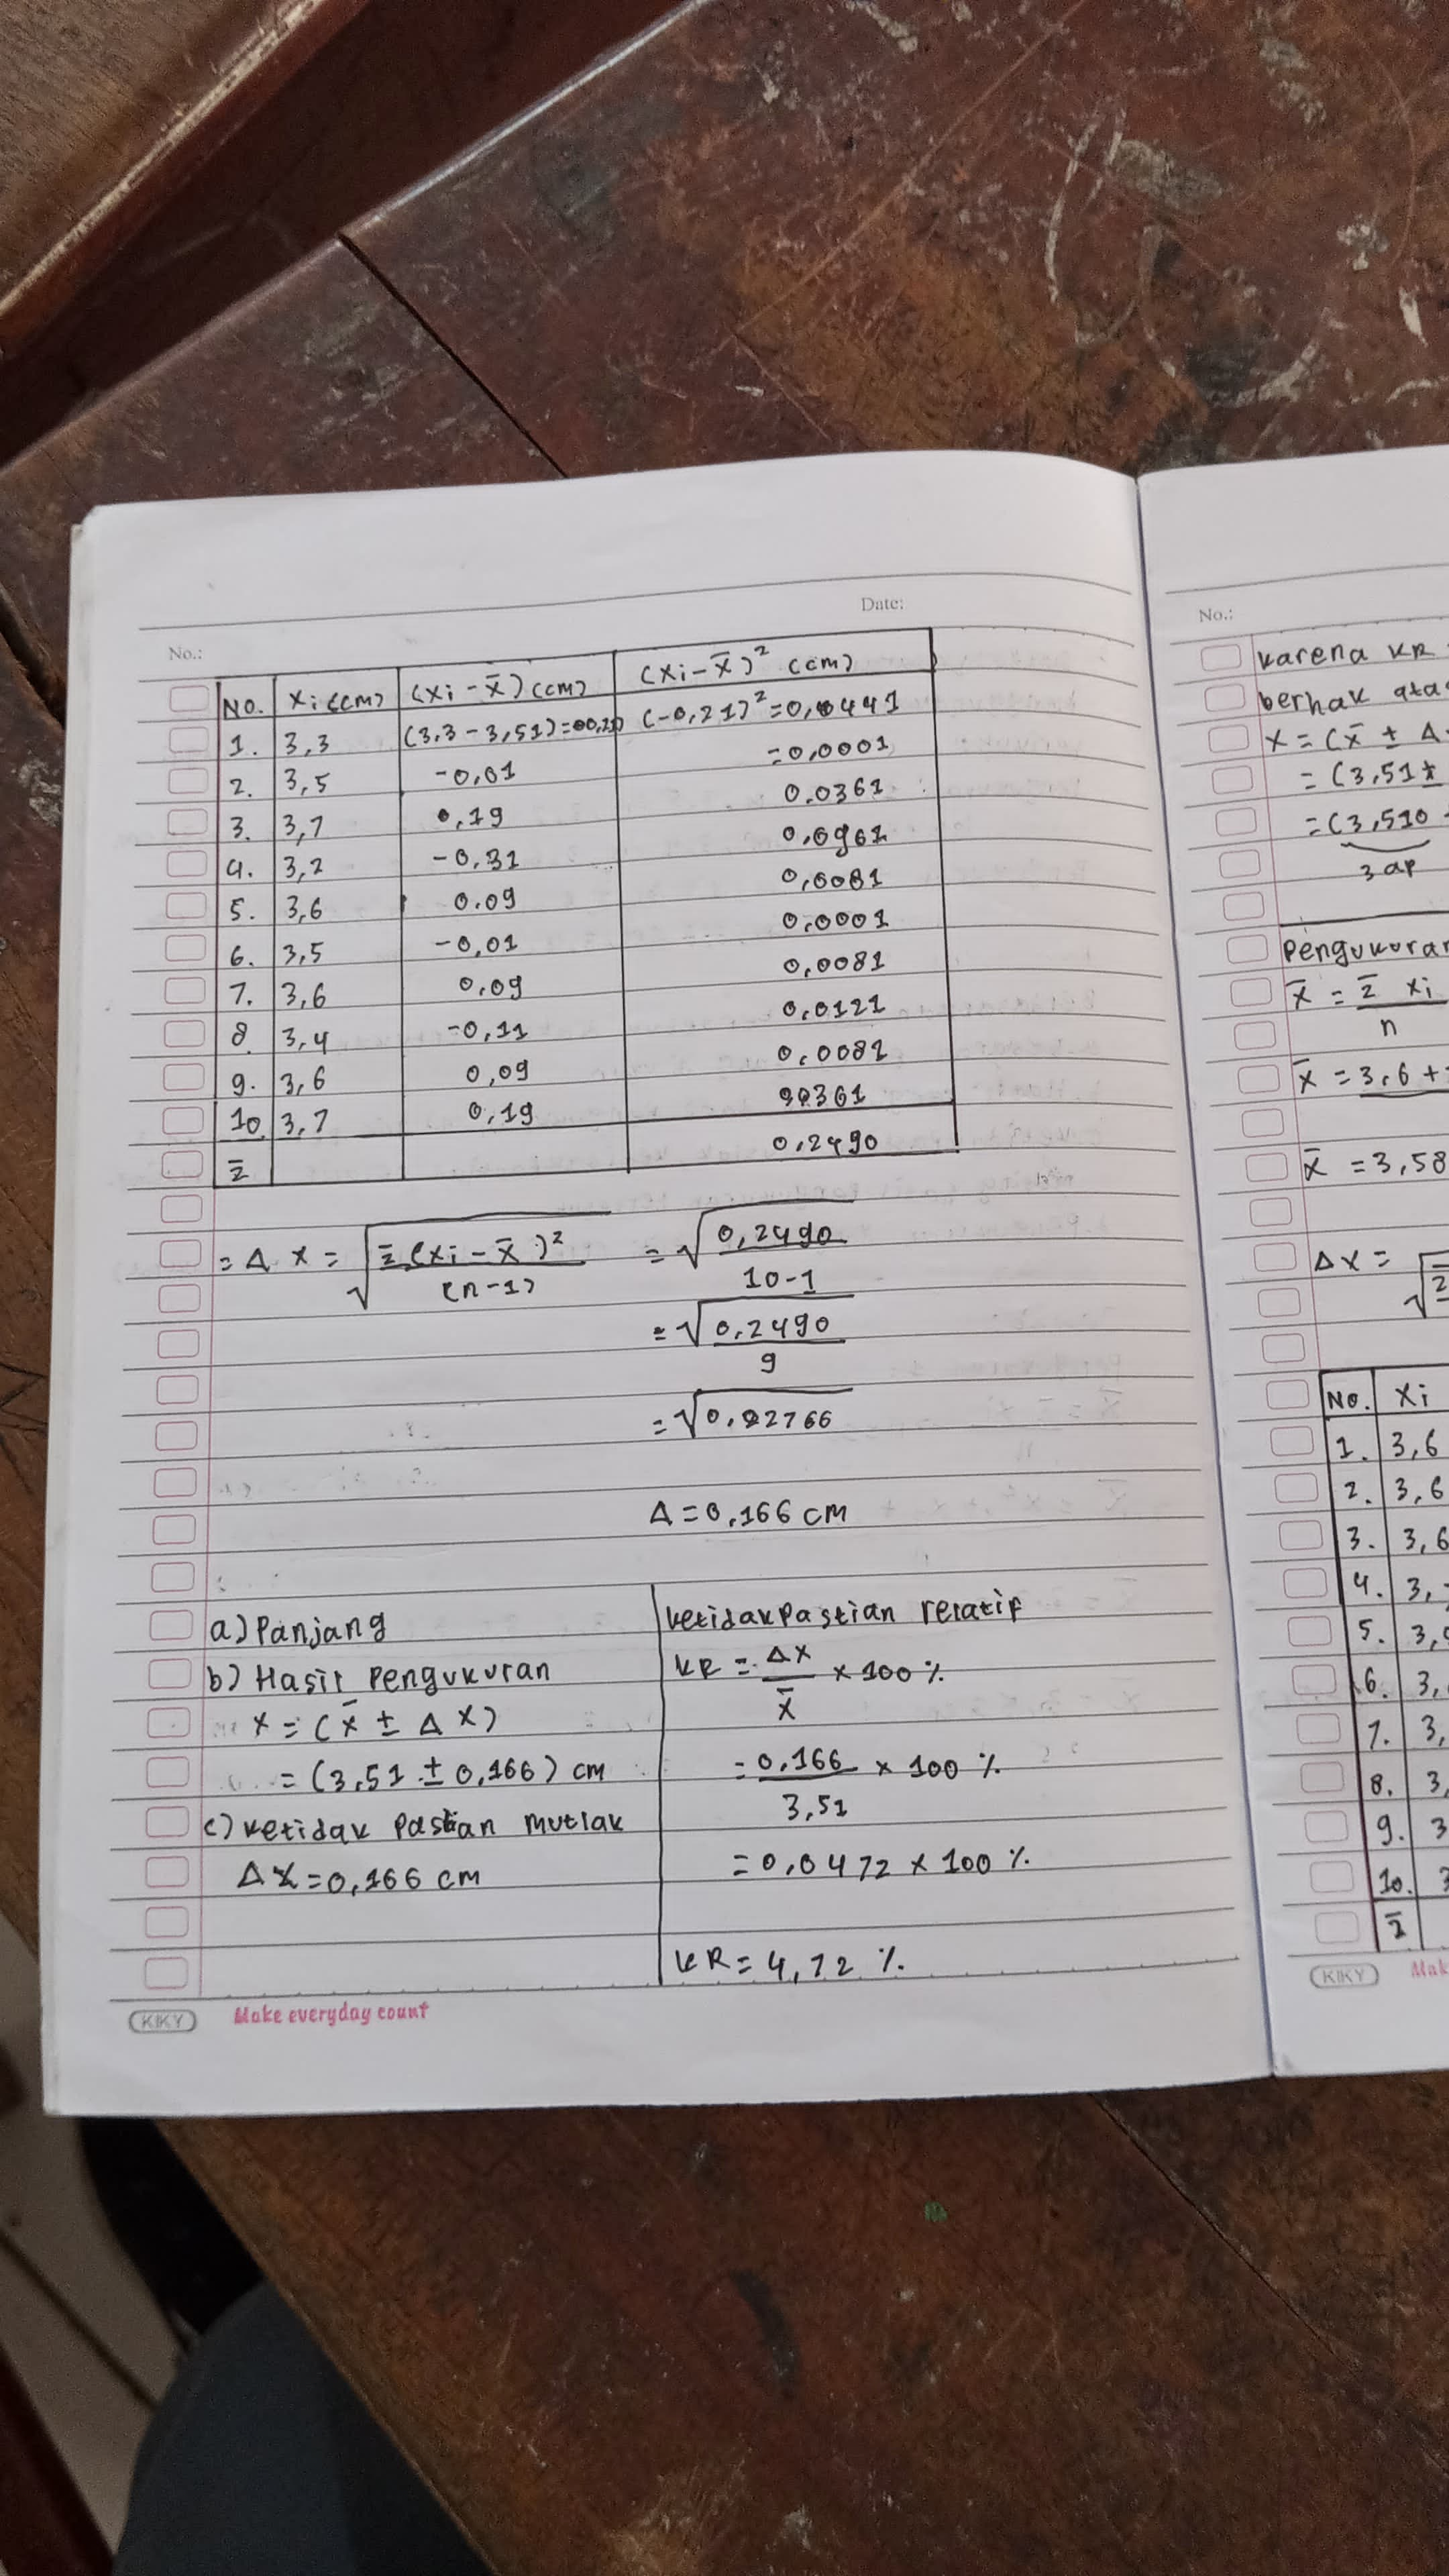 No.:
Date:
No. Xi (cm) (Xi - x̄) (cm) (Xi - x̄)² (cm)
1. 3,3 (3,3 - 3,51) = (-0,21)² = 0,0441
2. 3,5 -0,01 =0,0001
3. 3,7 0,19 0.0361
4. 3,2 -0,31 0,0961
5. 3,6 0.09 0,0081
6. 3,5 -0,01 0,0001
7. 3,6 0,09 0,0081
8. 3,4 -0,11 0,0121
9. 3,6 0,09 0,0081
10. 3,7 0,19 0361
Σ 0,2490
= Δ X = √Σ(Xi - x̄)² / (n-1) = √0,2490 / 10-1
= √0,2490 / 9
= √0,02766
Δ = 0,166 cm
a) Panjang
b) Hasil Pengukuran
X = (x̄ ± Δ X)
= (3,51 ± 0,166) cm
c) ketidak Pastian Mutlak
ΔX = 0,166 cm
ketidakPastian relatif
KR = ΔX / x̄ × 100 %
= 0,166 / 3,51 × 100 %
= 0,0472 × 100 %
KR = 4,72 %
KIKY Make everyday count
No.:
karena KR
berhak
X = (x̄ ± Δ
= (3,51 ±
= (3,510
3 ap
x̄ = Σ xi / n
x̄ = 3,6 +
x̄ = 3,58
ΔX =
No. Xi
1. 3,6
2. 3,6
3. 3,6
4. 3,
5. 3,
6. 3,
7. 3,
8. 3,
9. 3
10. 3
Σ
KIKY